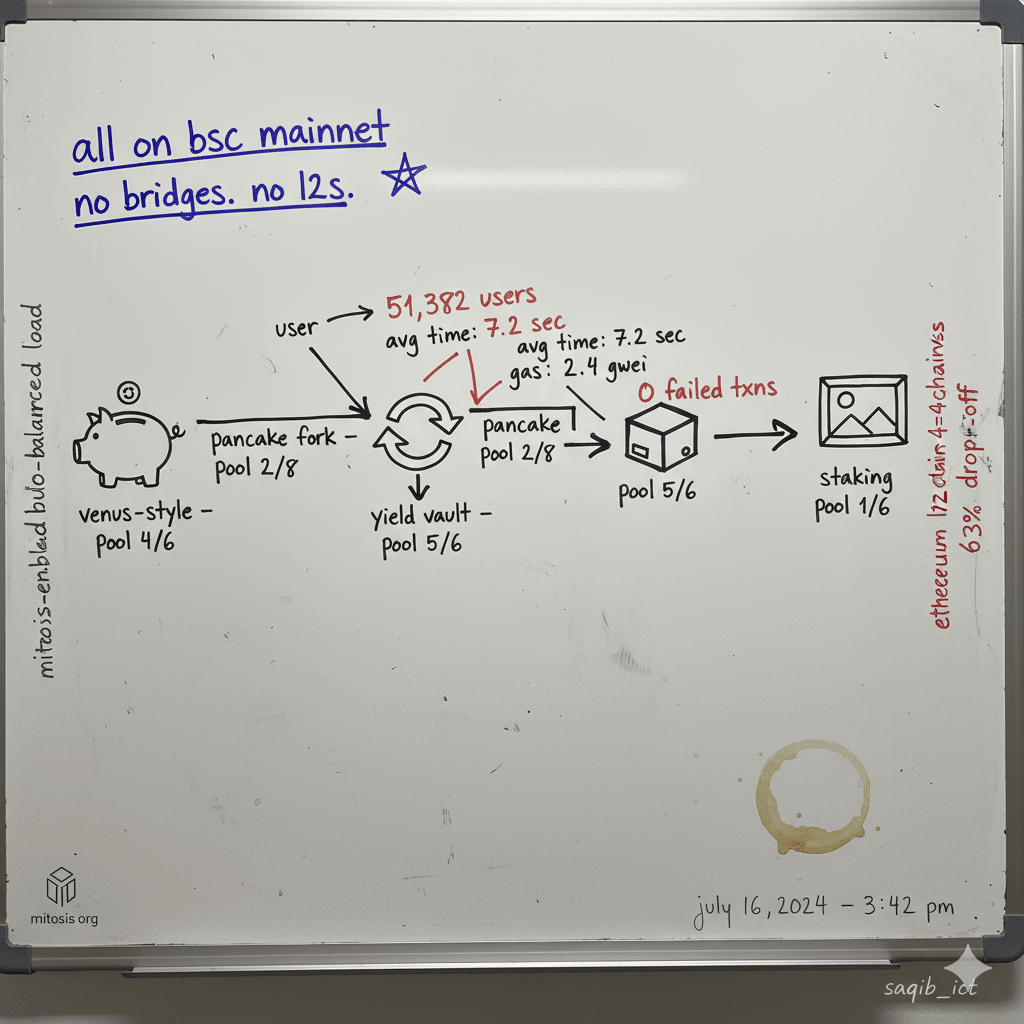 all on bsc mainnet
no bridges. no l2s.
user
51,382 users
avg time: 7.2 sec
avg time: 7.2 sec
gas: 2.4 gwei
0 failed txns
pancake fork –
pool 2/8
pancake
pool 2/8
venus-style –
pool 4/6
yield vault –
pool 5/6
pool 5/6
staking
pool 1/6
load
63% drop-off
mitosis org
july 16, 2024 – 3:42 pm
saqib_ict